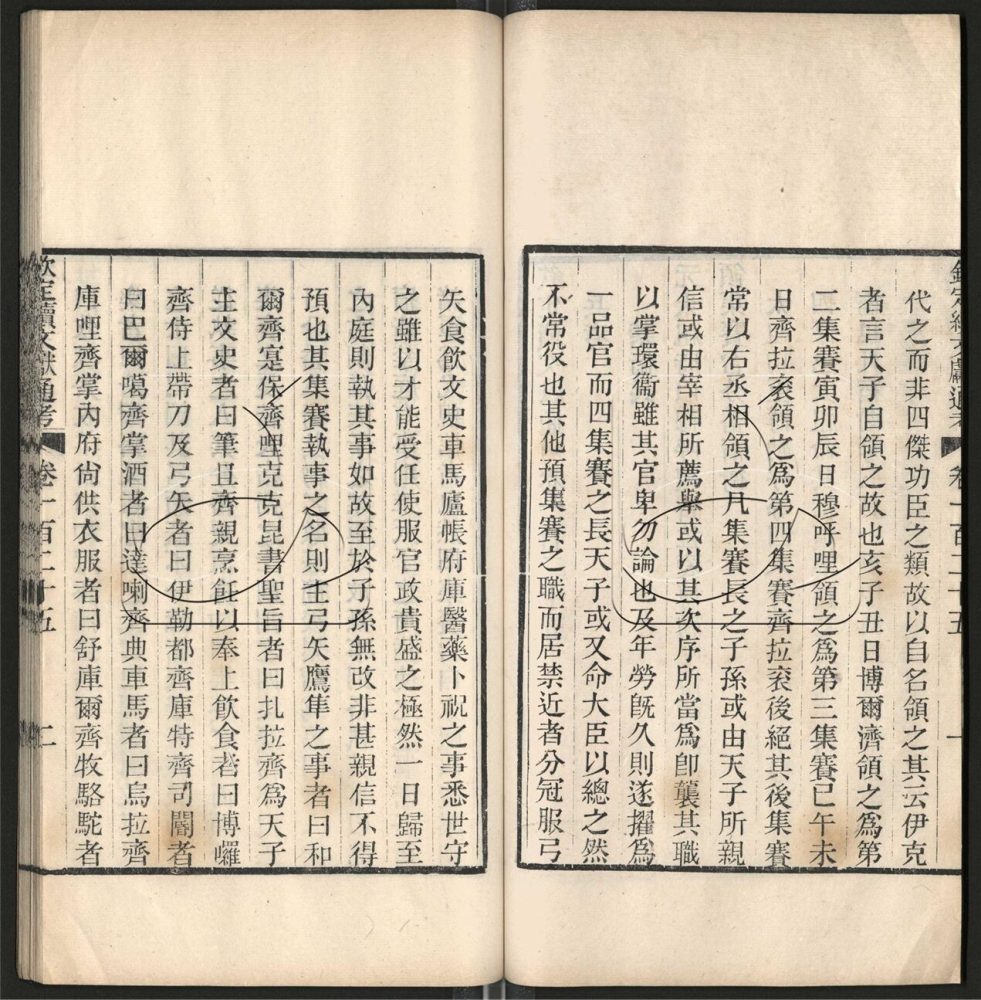 代之而非四傑功臣之類故以自名領之其云伊克
者言天子自領之故也亥子丑日博爾濟領之爲第
二集賽寅卯辰日穆呼哩領之爲第三集賽巳午未
日齊拉衮領之爲第四集賽齊拉衮後絕其後集賽
常以右丞相領之凡集賽長之子孫或由天子所親
信或由宰相所薦舉或以其次序所當爲卽襲其職
以掌環衞雖其官卑勿論也及年勞旣久則遂擢爲
一品官而四集賽之長天子或又命大臣以總之然
不常役也其他預集賽之職而居禁近者分冠服弓
矢食飲文史車馬廬帳府庫醫藥卜祝之事悉世守
之雖以才能受任使服官政貴盛之極然一日歸至
內庭則執其事如故至於子孫無改非甚親信不得
預也其集賽執事之名則主弓矢鷹隼之事者曰和
爾齊寔保齊哩克克昆書聖旨者曰扎拉齊爲天子
主文史者曰筆且齊親烹飪以奉上飲食者曰博囉
齊侍上帶刀及弓矢者曰伊勒都齊庫特齊司閽者
曰巴爾噶齊掌酒者曰達喇齊典車馬者曰烏拉齊
庫哩齊掌內府尙供衣服者曰舒庫爾齊牧駱駝者
欽定續文獻通考 卷一百二十五 二